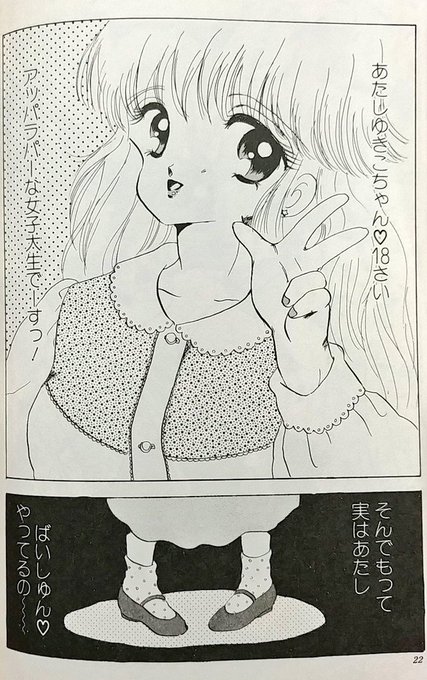 ―あたしゆきこちゃん♡18さい
アッパラパーな女子大生でーすっ!
そんでもって
実はあたし
ばいしゅん♡
やってるの〜〜〜
22